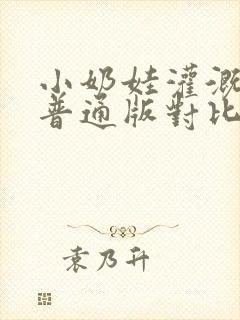 小奶娃灌溉
普通版對比
袁乃升